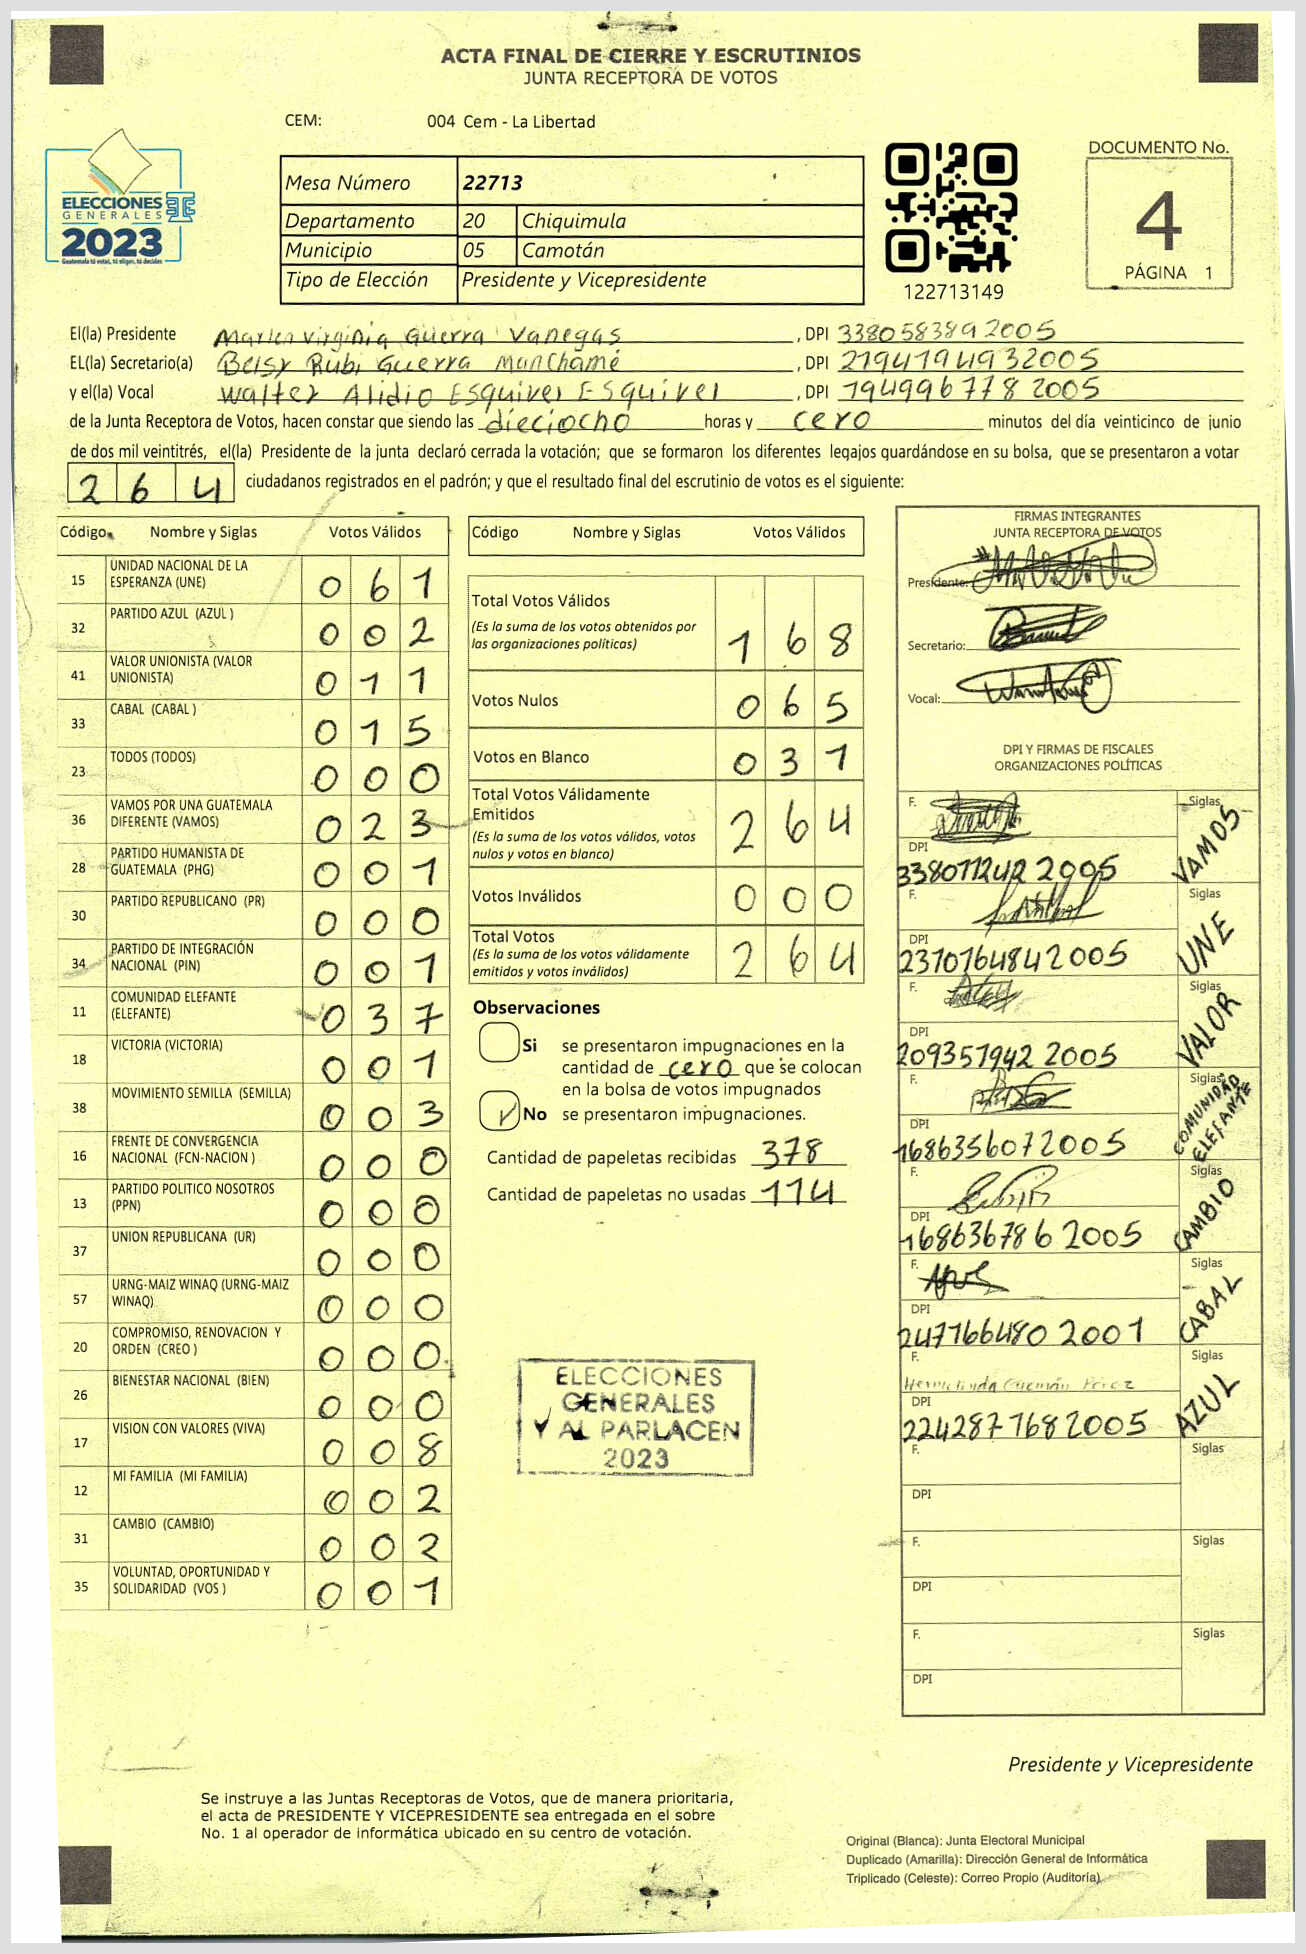 ACTA FINAL DE CIERRE Y ESCRUTINIOS
JUNTA RECEPTORA DE VOTOS
CEM: 004 Cem - La Libertad
ELECCIONES
GENERALES
2023
Guatemala tú estás, tú eliges, tú decides
Mesa Número 22713
Departamento 20 Chiquimula
Municipio 05 Camotán
Tipo de Elección Presidente y Vicepresidente
122713149
DOCUMENTO No.
4
PÁGINA 1
El(la) Presidente Marlen Virginia Guerra Vanegas, DPI 3380583892005
EL(la) Secretario(a) Beisy Rubi Guerra Manchamé, DPI 2194194932005
y el(la) Vocal Walter Alidio Esquivel Esquivel, DPI 1949967782005
de la Junta Receptora de Votos, hacen constar que siendo las dieciocho horas y cero minutos del día veinticinco de junio
de dos mil veintitrés, el(la) Presidente de la junta declaró cerrada la votación; que se formaron los diferentes legajos guardándose en su bolsa, que se presentaron a votar
264 ciudadanos registrados en el padrón; y que el resultado final del escrutinio de votos es el siguiente:
Código Nombre y Siglas Votos Válidos
15 UNIDAD NACIONAL DE LA ESPERANZA (UNE) 061
32 PARTIDO AZUL (AZUL ) 002
41 VALOR UNIONISTA (VALOR UNIONISTA) 011
33 CABAL (CABAL ) 015
23 TODOS (TODOS) 000
36 VAMOS POR UNA GUATEMALA DIFERENTE (VAMOS) 023
28 PARTIDO HUMANISTA DE GUATEMALA (PHG) 001
30 PARTIDO REPUBLICANO (PR) 000
34 PARTIDO DE INTEGRACIÓN NACIONAL (PIN) 001
11 COMUNIDAD ELEFANTE (ELEFANTE) 037
18 VICTORIA (VICTORIA) 001
38 MOVIMIENTO SEMILLA (SEMILLA) 003
16 FRENTE DE CONVERGENCIA NACIONAL (FCN-NACION ) 000
13 PARTIDO POLITICO NOSOTROS (PPN) 000
37 UNION REPUBLICANA (UR) 000
57 URNG-MAIZ WINAQ (URNG-MAIZ WINAQ) 000
20 COMPROMISO, RENOVACION Y ORDEN (CREO ) 000
26 BIENESTAR NACIONAL (BIEN) 000
17 VISION CON VALORES (VIVA) 008
12 MI FAMILIA (MI FAMILIA) 002
31 CAMBIO (CAMBIO) 002
35 VOLUNTAD, OPORTUNIDAD Y SOLIDARIDAD (VOS ) 001
Código Nombre y Siglas Votos Válidos
Total Votos Válidos 168
(Es la suma de los votos obtenidos por
las organizaciones políticas)
Votos Nulos 065
Votos en Blanco 031
Total Votos Válidamente
Emitidos 264
(Es la suma de los votos válidos, votos
nulos y votos en blanco)
Votos Inválidos 000
Total Votos 264
(Es la suma de los votos válidamente
emitidos y votos inválidos)
Observaciones
Si se presentaron impugnaciones en la
cantidad de cero que se colocan
en la bolsa de votos impugnados
No se presentaron impugnaciones.
Cantidad de papeletas recibidas 378
Cantidad de papeletas no usadas 114
ELECCIONES
GENERALES
Y AL PARLACEN
2023
FIRMAS INTEGRANTES
JUNTA RECEPTORA DE VOTOS
Presidente:
Secretario:
Vocal:
DPI Y FIRMAS DE FISCALES
ORGANIZACIONES POLÍTICAS
F. Siglas VAMOS
DPI 3380712422005
F. Siglas UNE
DPI 2370764842005
F. Siglas VALOR
DPI 2093579422005
F. Siglas COMUNIDAD ELEFANTE
DPI 1686356072005
F. Siglas CAMBIO
DPI 1686367862005
F. Siglas CABAL
DPI 2477664802001
F. Hermelinda Guzmán Pérez Siglas AZUL
DPI 2242877682005
F. Siglas
DPI
F. Siglas
DPI
F. Siglas
DPI
Presidente y Vicepresidente
Se instruye a las Juntas Receptoras de Votos, que de manera prioritaria,
el acta de PRESIDENTE Y VICEPRESIDENTE sea entregada en el sobre
No. 1 al operador de informática ubicado en su centro de votación.
Original (Blanca): Junta Electoral Municipal
Duplicado (Amarilla): Dirección General de Informática
Triplicado (Celeste): Correo Propio (Auditoría)